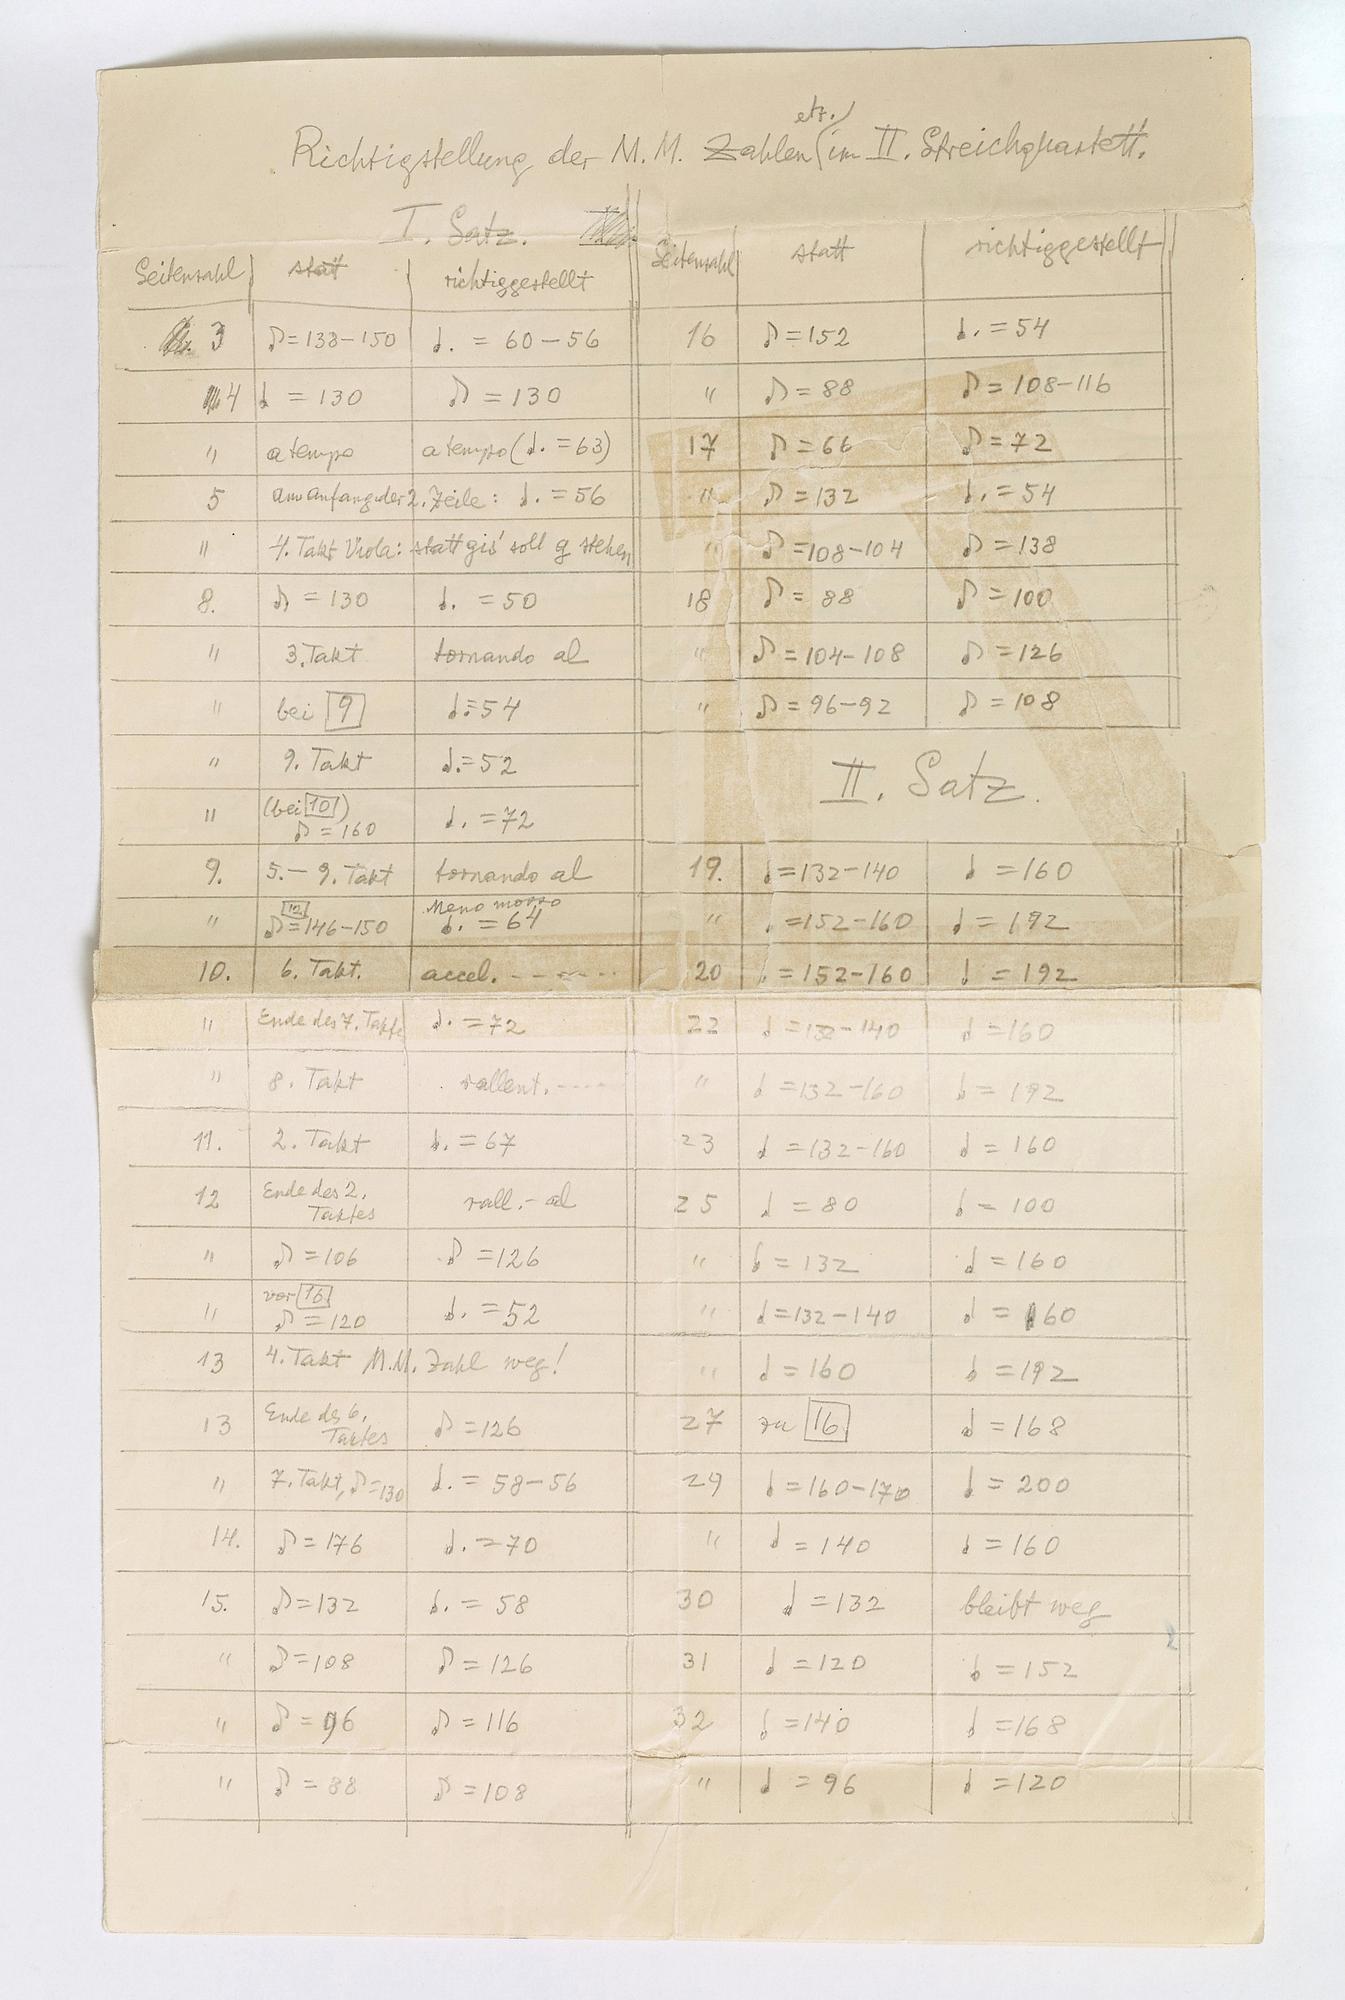 Richtigstellung der M.M. Zahlen etz. im II. Streichquartett.
I. Satz.
Seitenzahl statt richtiggestellt
3 ♪=138-150 ♩. = 60-56
4 ♩ = 130 ♪ = 130
" a tempo a tempo (♩. = 63)
5 am Anfang der 2. Zeile: ♩. = 56
" 4. Takt Viola: statt gis' soll g stehen
8. ♪ = 130 ♩. = 50
" 3. Takt tornando al
" bei 9 ♩. = 54
" 9. Takt ♩. = 52
" (bei 10)
♪ = 160 ♩. = 72
9. 5.-9. Takt tornando al
" ♪=146-150 Meno mosso
♩. = 64
10. 6. Takt. accel. - - - - - -
" Ende des 7. Taktes ♩. = 72
" 8. Takt rallent. - - - -
11. 2. Takt ♩. = 67
12 Ende des 2.
Taktes rall. - al
" ♪ = 106 ♪ = 126
" vor 16
♪ = 120 ♩. = 52
13 4. Takt M.M. Zahl weg!
13 Ende des 6.
Taktes ♪ = 126
" 7. Takt, ♪ = 130 ♩. = 58-56
14. ♪ = 176 ♩. = 70
15. ♪ = 132 ♩. = 58
" ♪ = 108 ♪ = 126
" ♪ = 96 ♪ = 116
" ♪ = 88 ♪ = 108
Seitenzahl statt richtiggestellt
16 ♪ = 152 ♩. = 54
" ♪ = 88 ♪ = 108-116
17 ♪ = 66 ♪ = 72
" ♪ = 132 ♩. = 54
" ♪ = 108-104 ♪ = 138
18 ♪ = 88 ♪ = 100
" ♪ = 104-108 ♪ = 126
" ♪ = 96-92 ♪ = 108
II. Satz.
19. ♩ = 132-140 ♩ = 160
" ♩ = 152-160 ♩ = 192
20 ♩ = 152-160 ♩ = 192
22 ♩ = 132-140 ♩ = 160
" ♩ = 132-160 ♩ = 192
23 ♩ = 132-160 ♩ = 160
25 ♩ = 80 ♩ = 100
" ♩ = 132 ♩ = 160
" ♩ = 132-140 ♩ = 160
" ♩ = 160 ♩ = 192
27 zu 16 ♩ = 168
29 ♩ = 160-170 ♩ = 200
" ♩ = 140 ♩ = 160
30 ♩ = 132 bleibt weg
31 ♩ = 120 ♩ = 152
32 ♩ = 140 ♩ = 168
" ♩ = 96 ♩ = 120